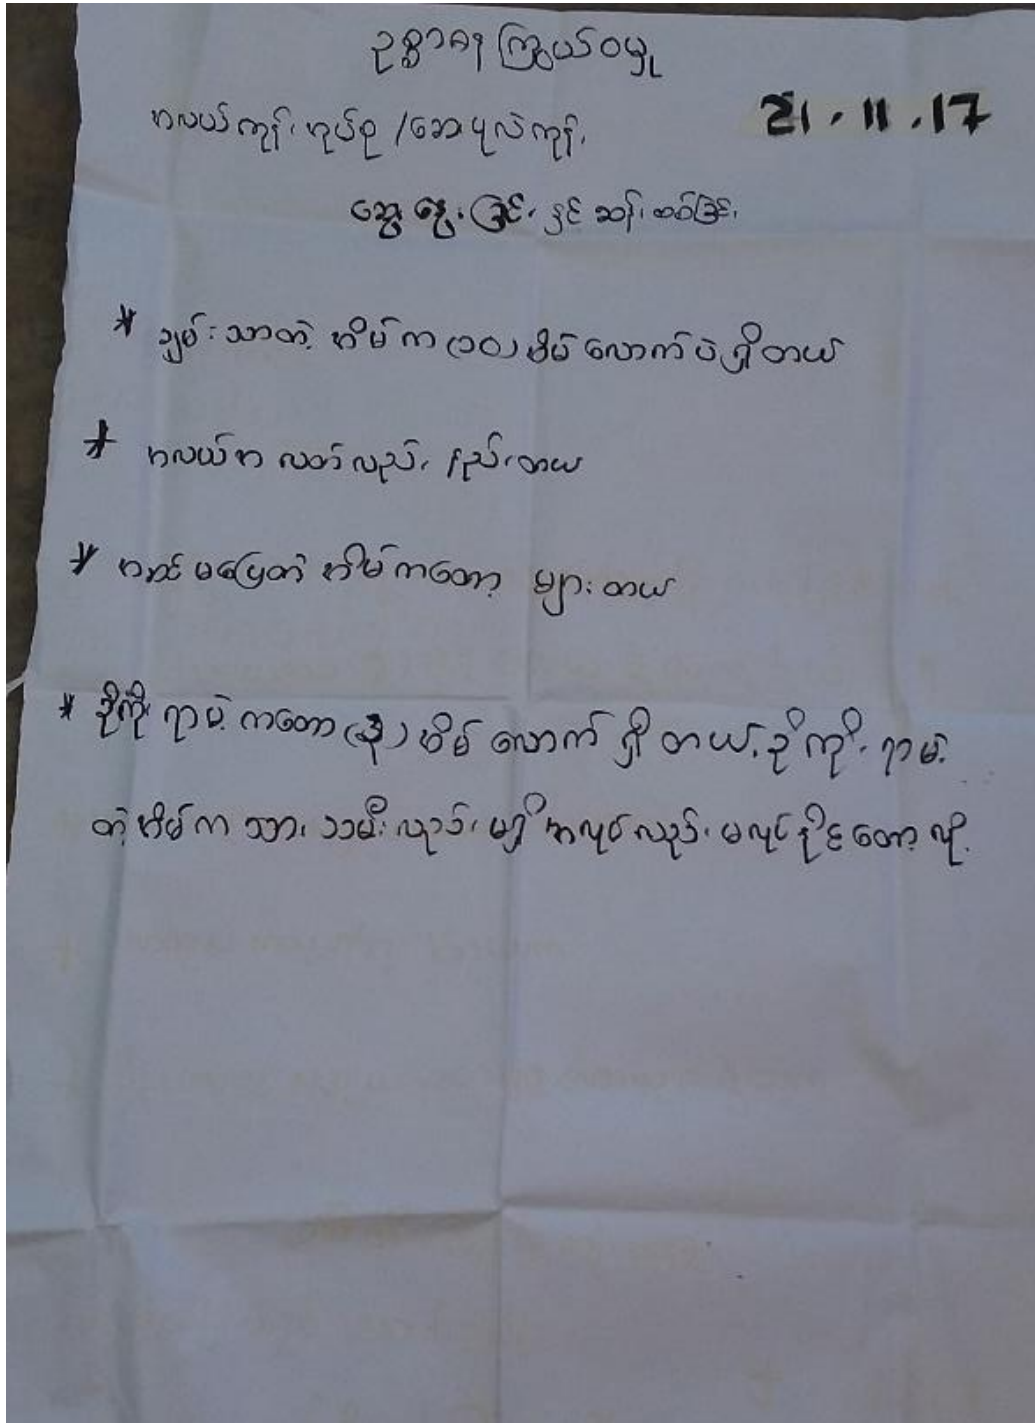 ဥစ္စာဓန ကြွယ်ဝမှု
အလယ်ကုန်း အုပ်စု / ဆေးပုလဲကုန်း
21.11.17
ဆွေးနွေးခြင်း နှင့် ဆန်းစစ်ခြင်း
* ချမ်းသာတဲ့ အိမ်က (၁၀) အိမ် လောက် ပဲ ရှိတယ်
* အလယ်အလတ်လည်း နည်းတယ
* အဆင်မပြေတဲ အိမ်ကတော့ များတယ
* ဒိုကိုးရာမဲ့ ကတော (၃) အိမ် လောက် ရှိတယ်. ဒိုကိုးရာမဲ့
တဲ့ အိမ်က သား သမီးလည်း မရှိ အလုပ်လည်း မလုပ်နိုင်တော့လို့